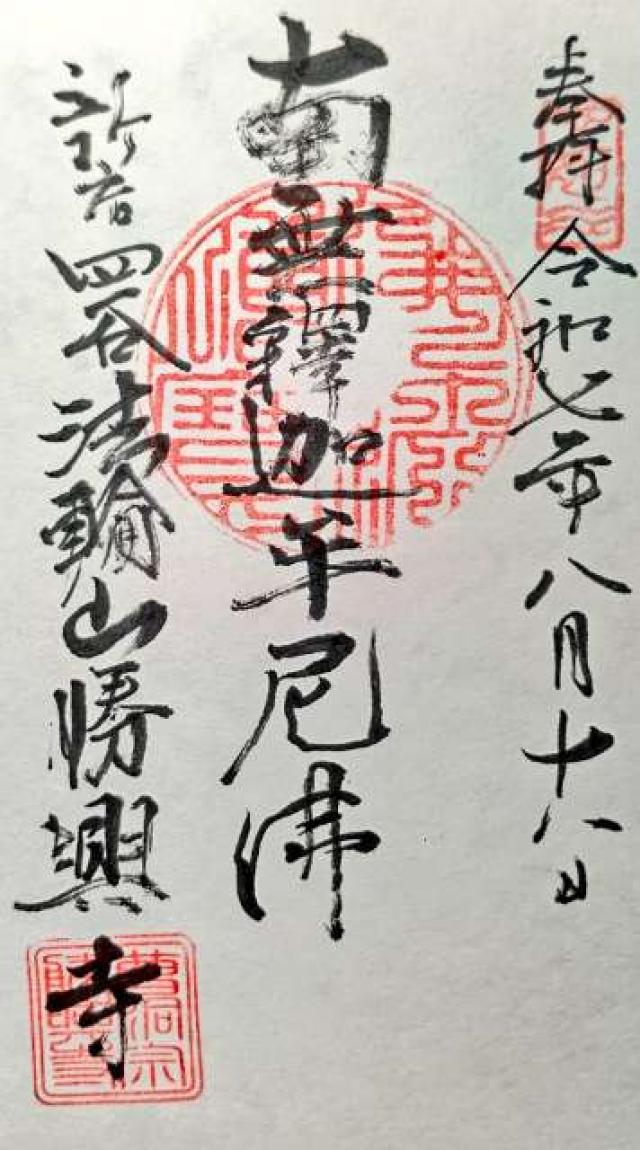 奉拝 令和七年八月十八日
南無釋迦牟尼佛
新宿四谷法輪山勝興寺